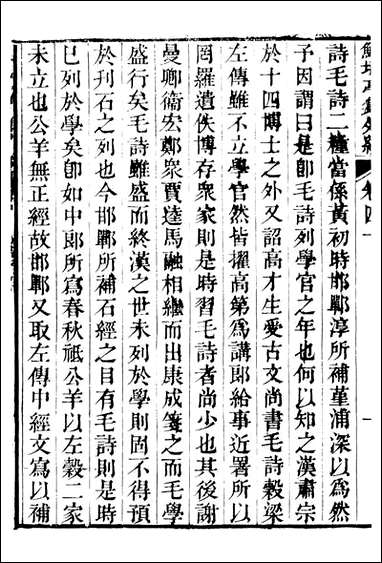 鮚埼亭集外編 卷四
詩毛詩二種當係黃初時邯鄲淳所補堇浦深以爲然
予因謂曰是卽毛詩列學官之年也何以知之漢肅宗
於十四博士之外又詔高才生受古文尚書毛詩穀梁
左傳雖不立學官然皆擢高第爲講郎給事近署所以
罔羅遺佚博存衆家則是時習毛詩者尚少也其後謝
曼卿衞宏鄭衆賈逵馬融相繼而出康成箋之而毛學
盛行矣毛詩雖盛而終漢之世未列於學則固不得預
於刊石之列也今邯鄲所補石經之目有毛詩則是時
已列於學矣卽如中郎所爲春秋祗公羊以左穀二家
未立也公羊無正經故邯鄲又取左傳中經文寫以補